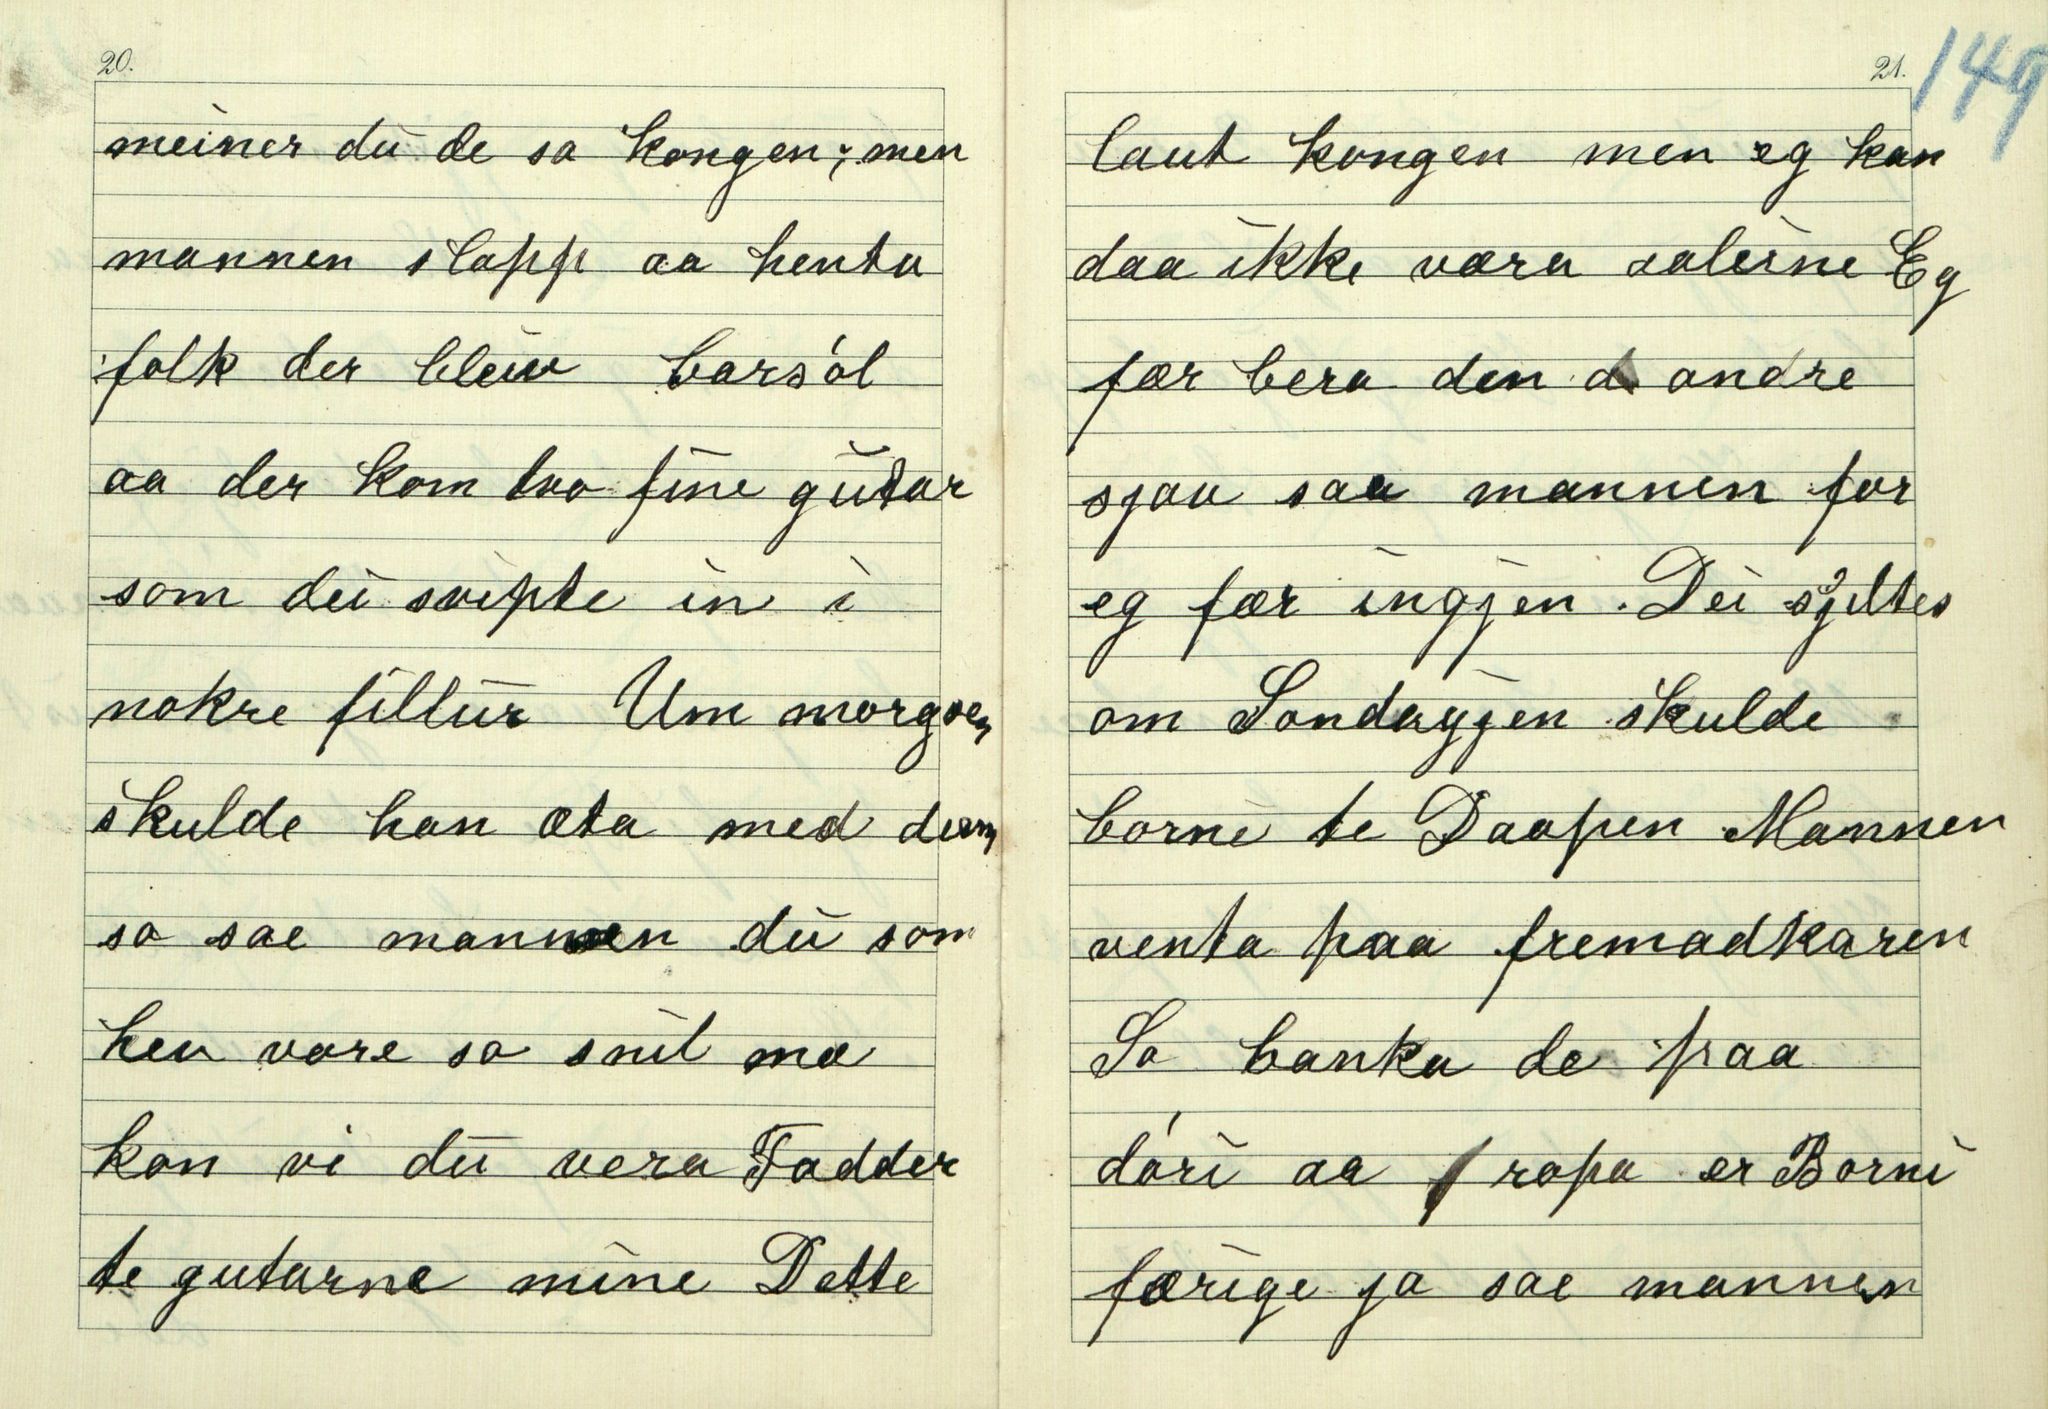 20.
meiner du de sa kongen; men
mannen slapp aa henta
folk der bleiv barsól
aa der kom tvo fine gutar
som dei svipte in i
nokre fillur Um morgoen
skulde han æta med deim
so sae mannen du som
hev vore so snil mæ
kan vi du vera Fadder
te gutarne mine Dette
21.
149
laut kongen men eg kan
daa ikke væra aleine Eg
fær bera den andre
sjøv saa mannen for
eg fær ingjen. Dei sjiltes
om Sondagjen skulde
borni te Daapen Mannen
venta paa fremadkaren
So banka de paa
dóri aa ropa er Borni
færige ja sae mannen